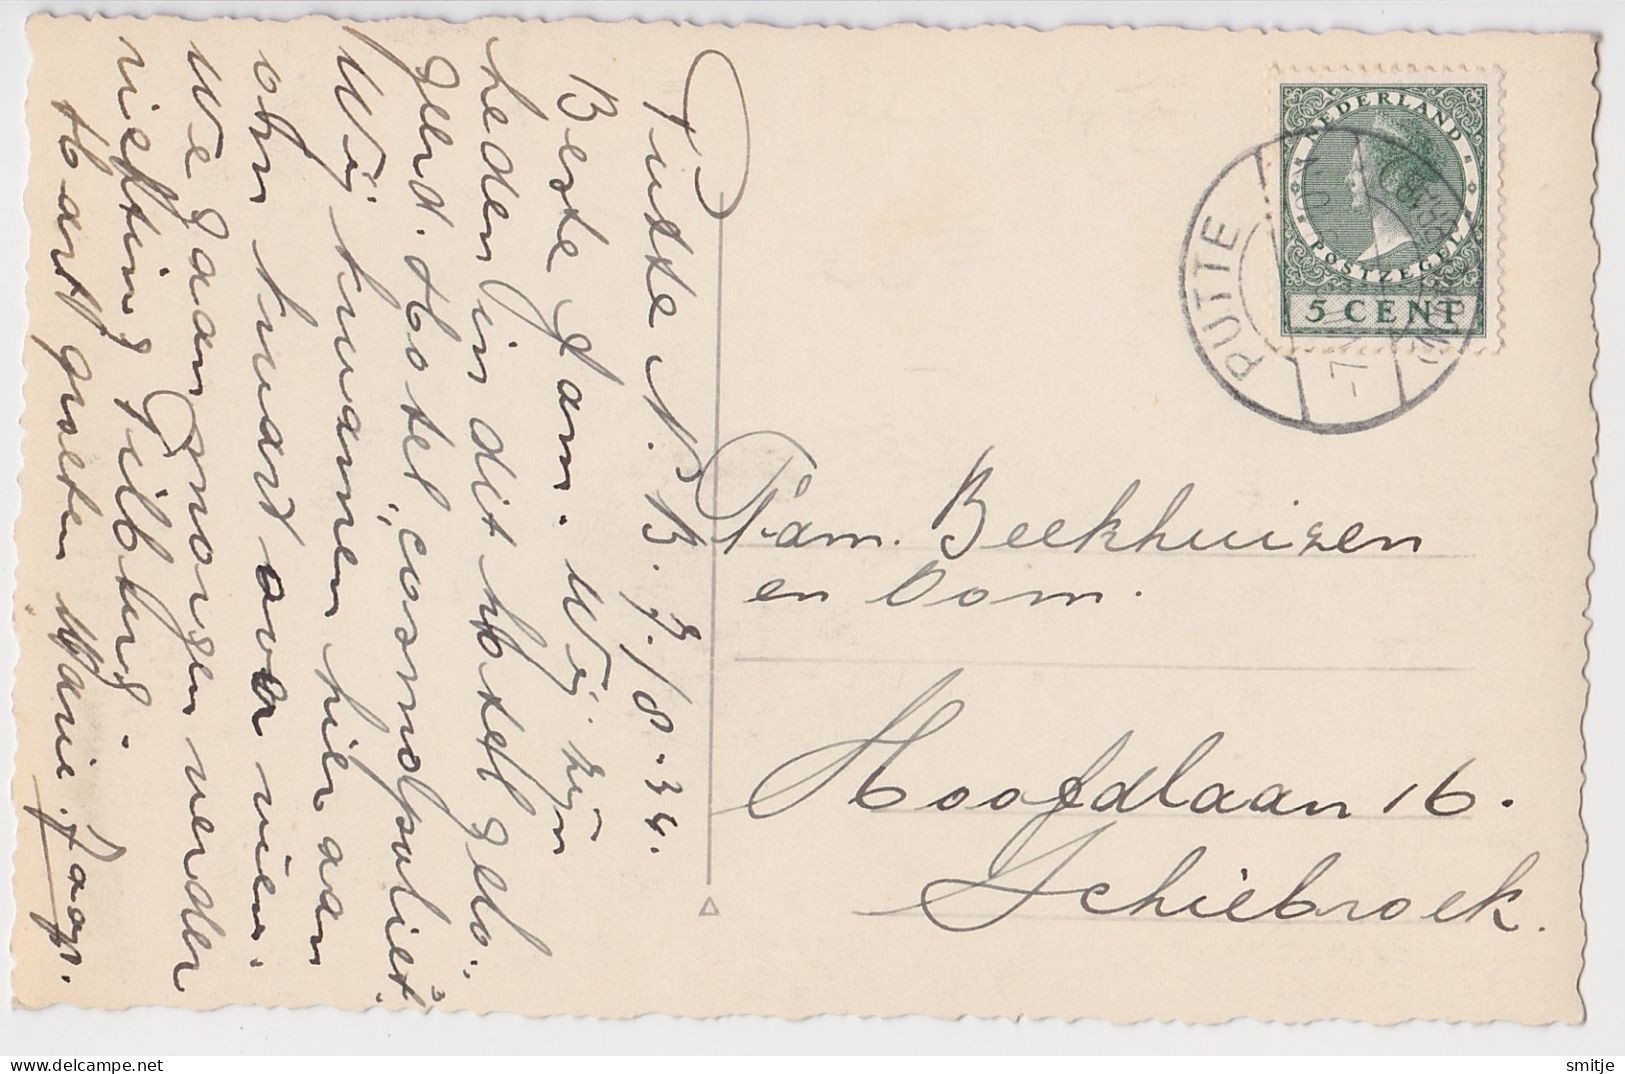 Putte N. B. 7/8-34.
Beste Fam. Wij zijn
heden in dit Hotel gelo-
geerd. Hotel "Cosmopoliet"
Wij kwamen hier aan
om kwart over vier.
We gaan morgen verder
richting Tilburg.
Hart groeten Marie. Jaap.
Fam. Beekhuizen
en Oom.
Hoofdlaan 16.
Schiebroek.
NEDERLAND
POSTZEGEL
5 CENT
PUTTE
smitje